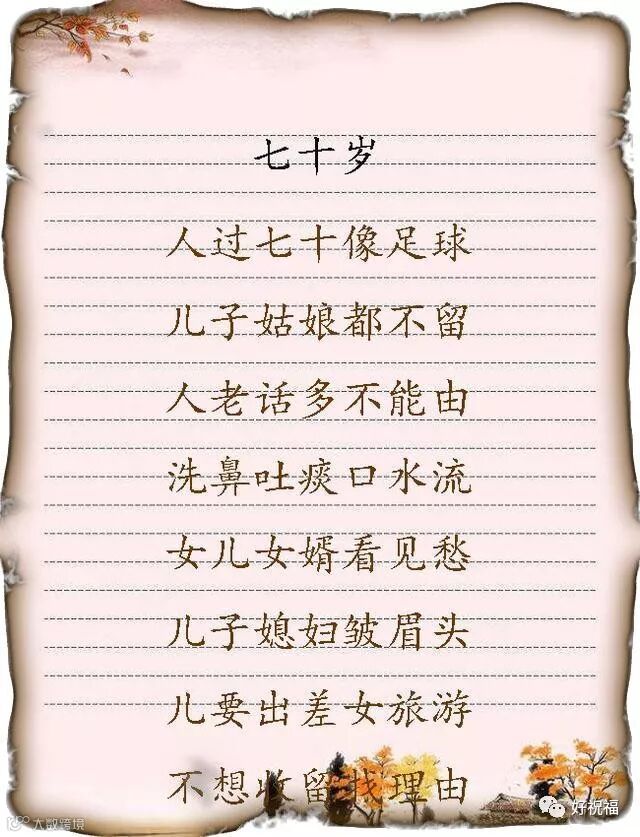 七十岁
人过七十像足球
儿子姑娘都不留
人老话多不能由
洗鼻吐痰口水流
女儿女婿看见愁
儿子媳妇皱眉头
儿要出差女旅游
不想收留找理由
好祝福
大数跨境